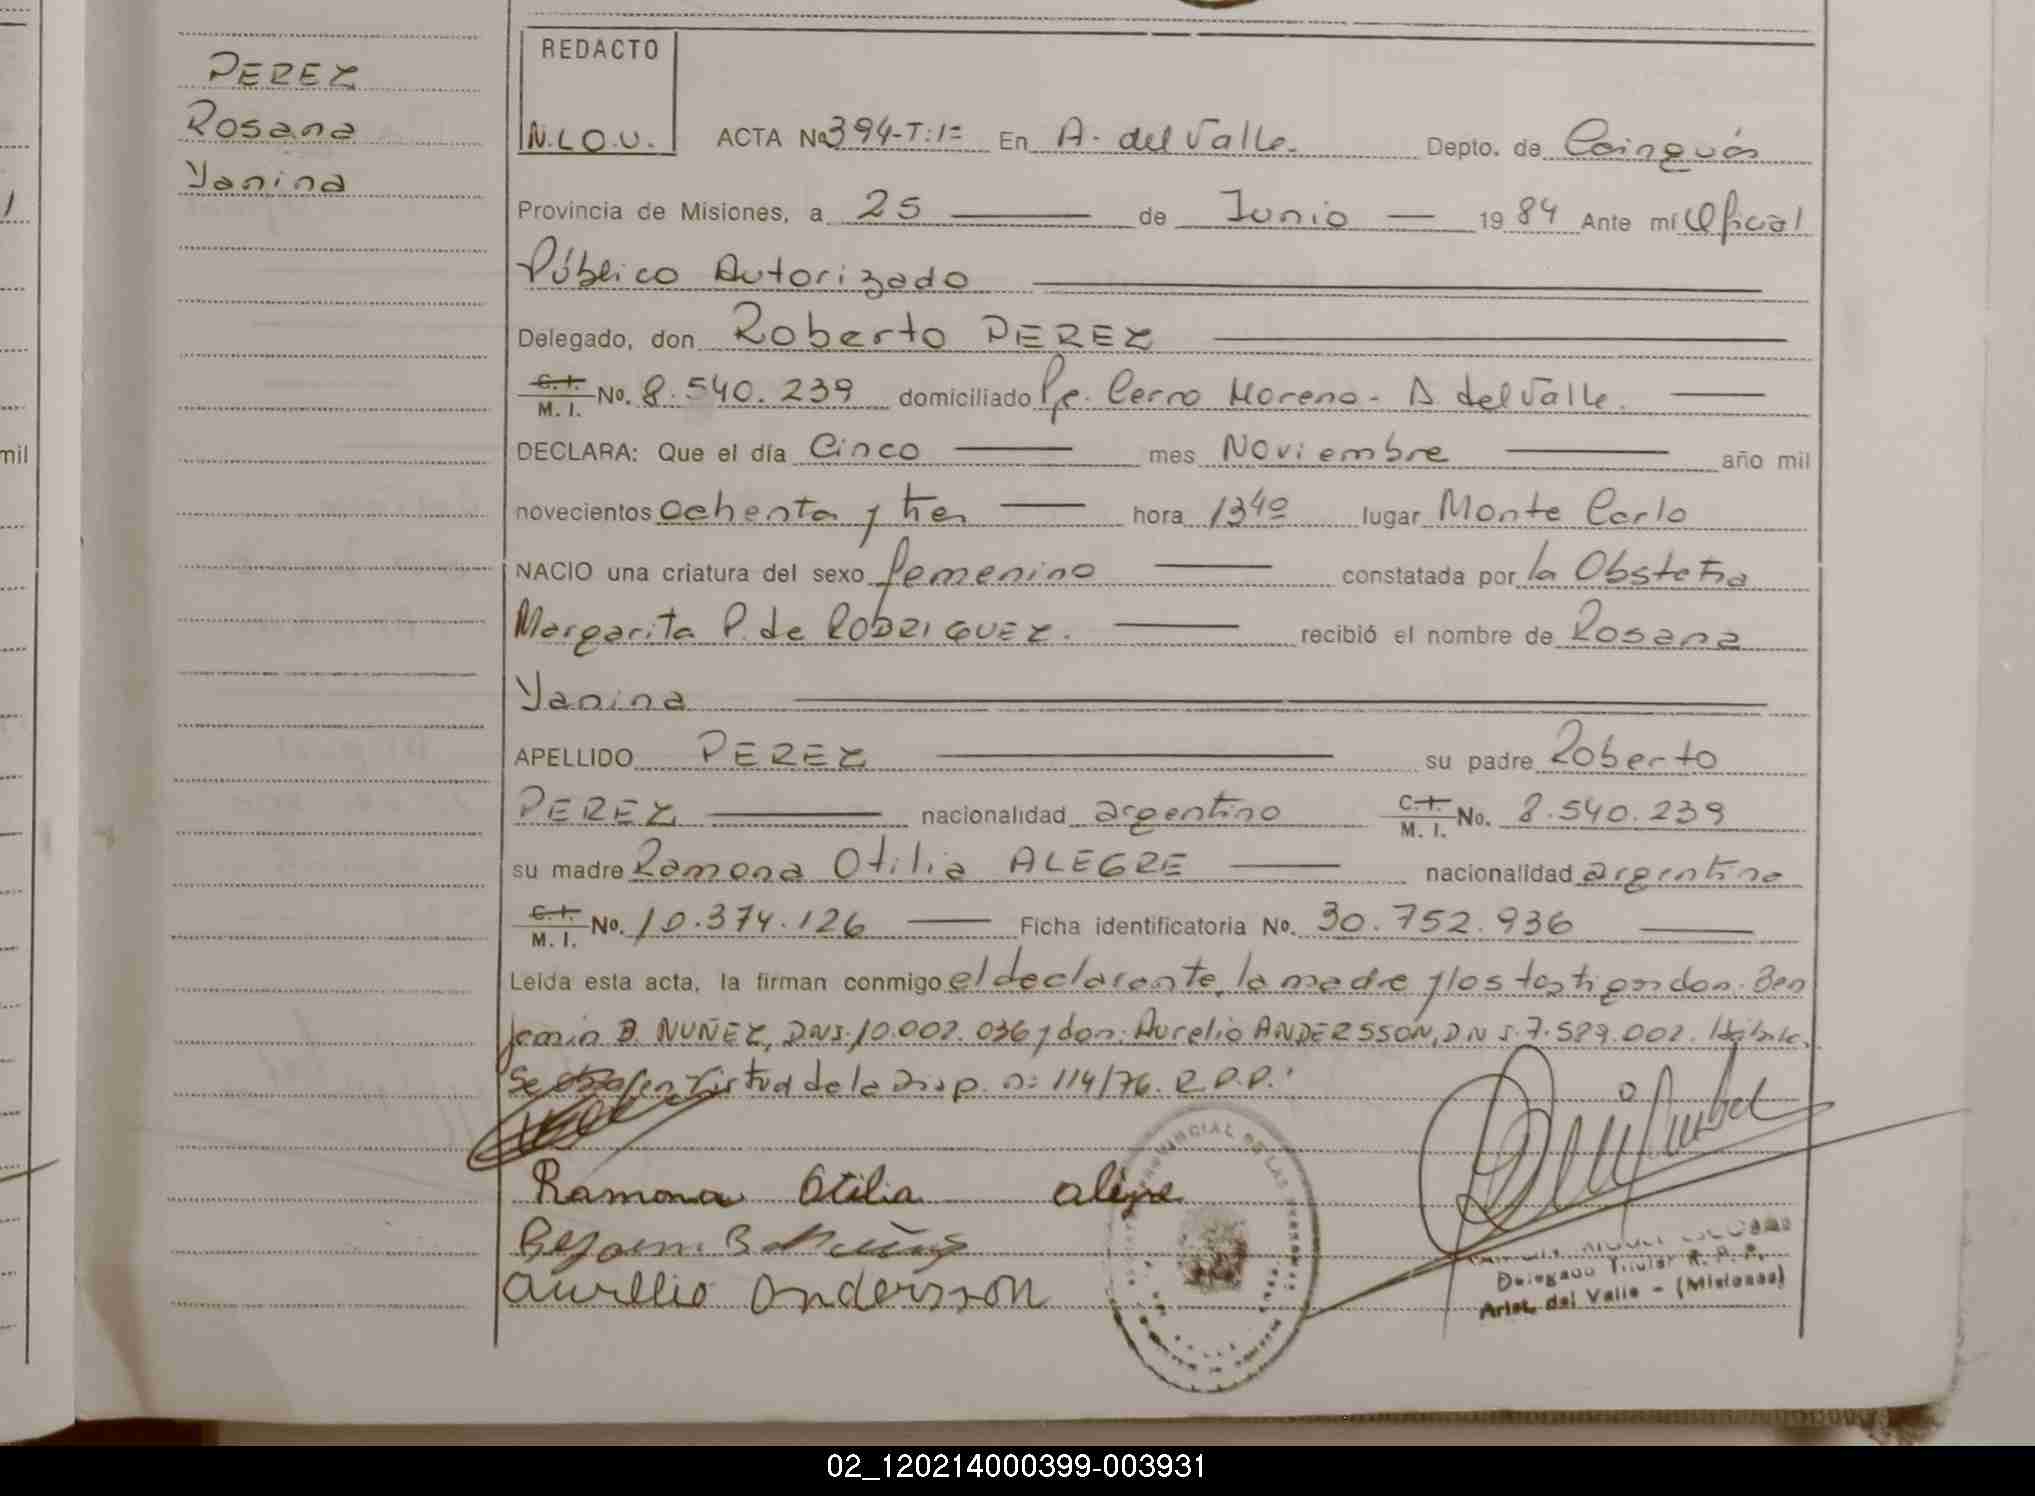 PEREZ
Rosana
Yanina
REDACTO
N.L.O.U.
ACTA No 394-T:1= En A. del Valle. Depto. de Cainguás
Provincia de Misiones, a 25 de Junio 1984 Ante mí Oficial
Público Autorizado
Delegado, don Roberto PEREZ
C.I. M. I. No. 8.540.239 domiciliado Pje. Cerro Moreno - A del Valle.
DECLARA: Que el día Cinco mes Noviembre año mil
novecientos ochenta y tres hora 13 40 lugar Monte Carlo
NACIO una criatura del sexo femenino constatada por la Obstetra
Margarita P. de RODRIGUEZ. recibió el nombre de Rosana
Yanina
APELLIDO PEREZ su padre Roberto
PEREZ nacionalidad argentino C.I. M. I. No. 8.540.239
su madre Ramona Otilia ALEGRE nacionalidad argentina
C.I. M. I. No. 10.374.126 Ficha identificatoria No. 30.752.936
Leída esta acta, la firman conmigo el declarante, la madre y los testigos don: Ben
jamin B. NUÑEZ, DNI. 10.002.036 y don: Aurelio ANDERSSON, DNI. 7.589.002.
Se en virtud de la Disp. n: 114/76. R.P.P.
Ramona Otilia Alegre
Benjamin B Nuñez
Aurelio Andersson
PROVINCIAL DE LAS PERSONAS
Delegado Titular R. P. P.
Arist. del Valle - (Misiones)
mil
02_120214000399-003931